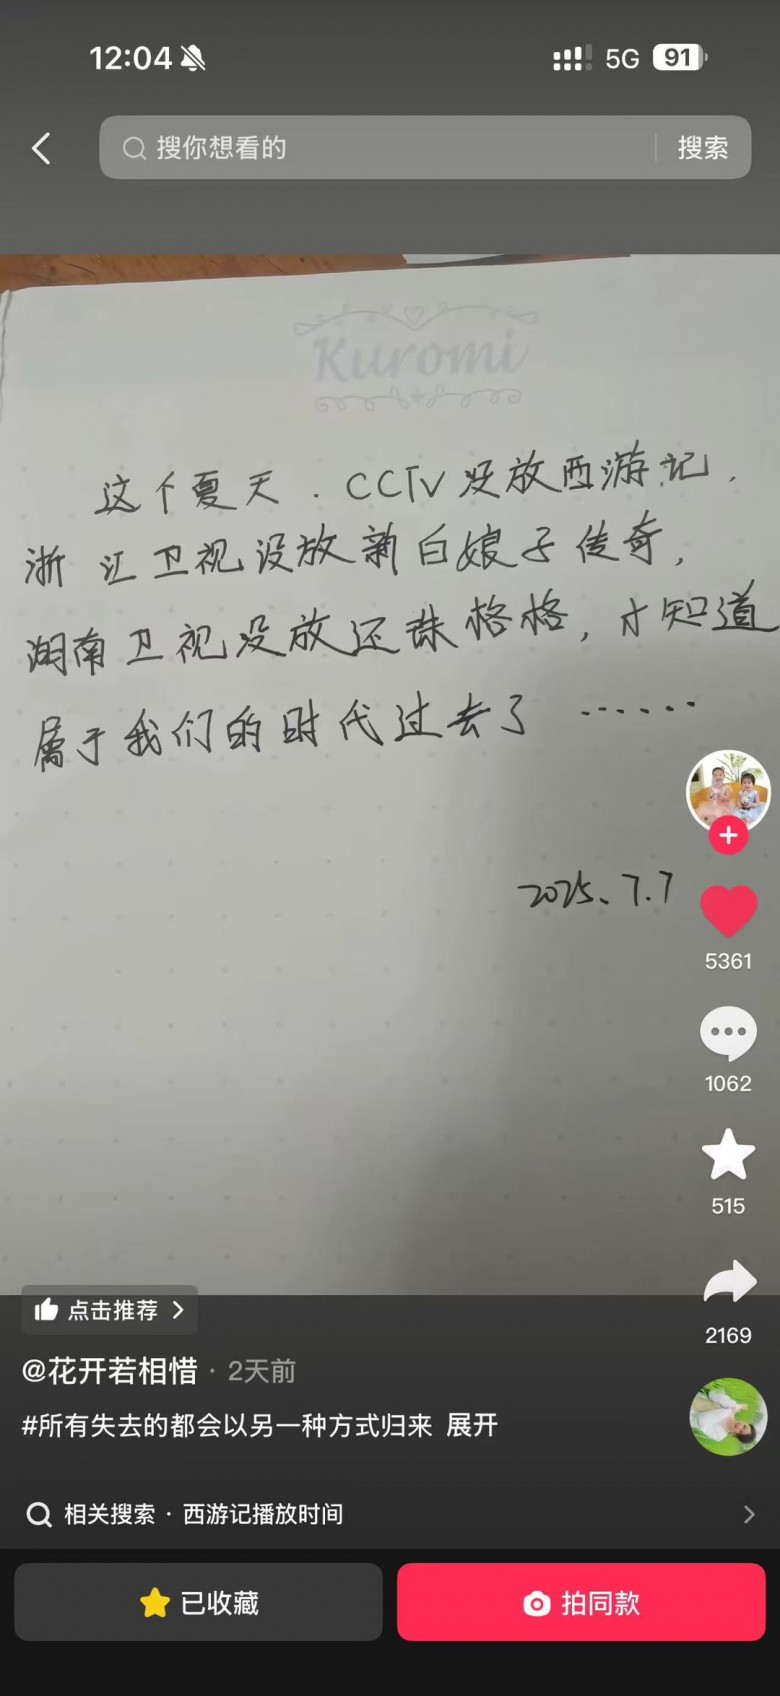 12:04
5G
91
搜你想看的
搜索
Kuromi
这个夏天.CCTV没放西游记.
浙江卫视没放新白娘子传奇,
湖南卫视没放还珠格格,才知道
属于我们的时代过去了……
2025.7.7
5361
1062
515
2169
点击推荐
@花开若相惜 · 2天前
#所有失去的都会以另一种方式归来 展开
相关搜索 · 西游记播放时间
已收藏
拍同款